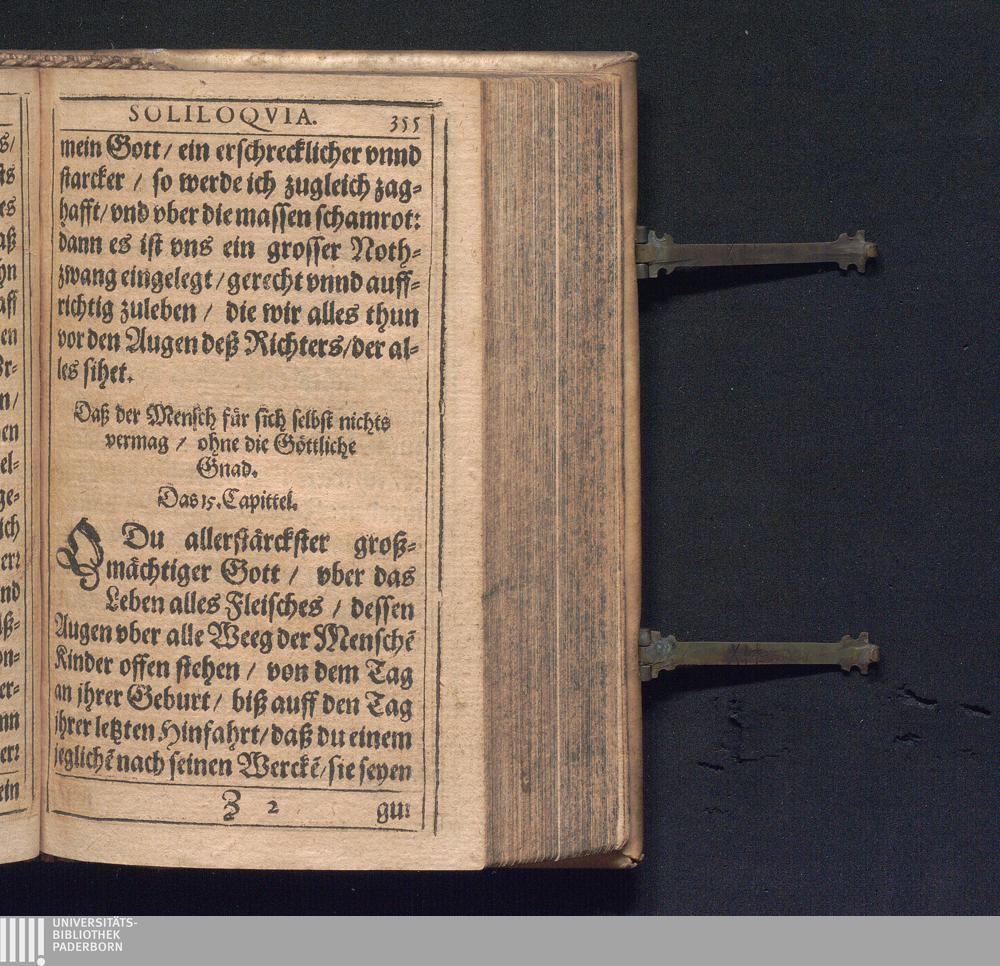 SOLILOQVIA. 355
mein Gott / ein erschrecklicher vnnd
starcker / so werde ich zugleich zag-
hafft / vnd vber die massen schamrot:
dann es ist vns ein grosser Noth-
zwang eingelegt / gerecht vnnd auff-
richtig zuleben / die wir alles thun
vor den Augen deß Richters / der al-
les sihet.
Daß der Mensch für sich selbst nichts
vermag / ohne die Göttliche
Gnad.
Das 15. Capittel.
O Du allerstärckster groß-
mächtiger Gott / vber das
Leben alles Fleisches / dessen
Augen vber alle Weeg der Menschē
Kinder offen stehen / von dem Tag
an jhrer Geburt / biß auff den Tag
jhrer letzten Hinfahrt / daß du einem
jeglichē nach seinen Werckē / sie seyen
Z 2 gut
UNIVERSITÄTS-
BIBLIOTHEK
PADERBORN